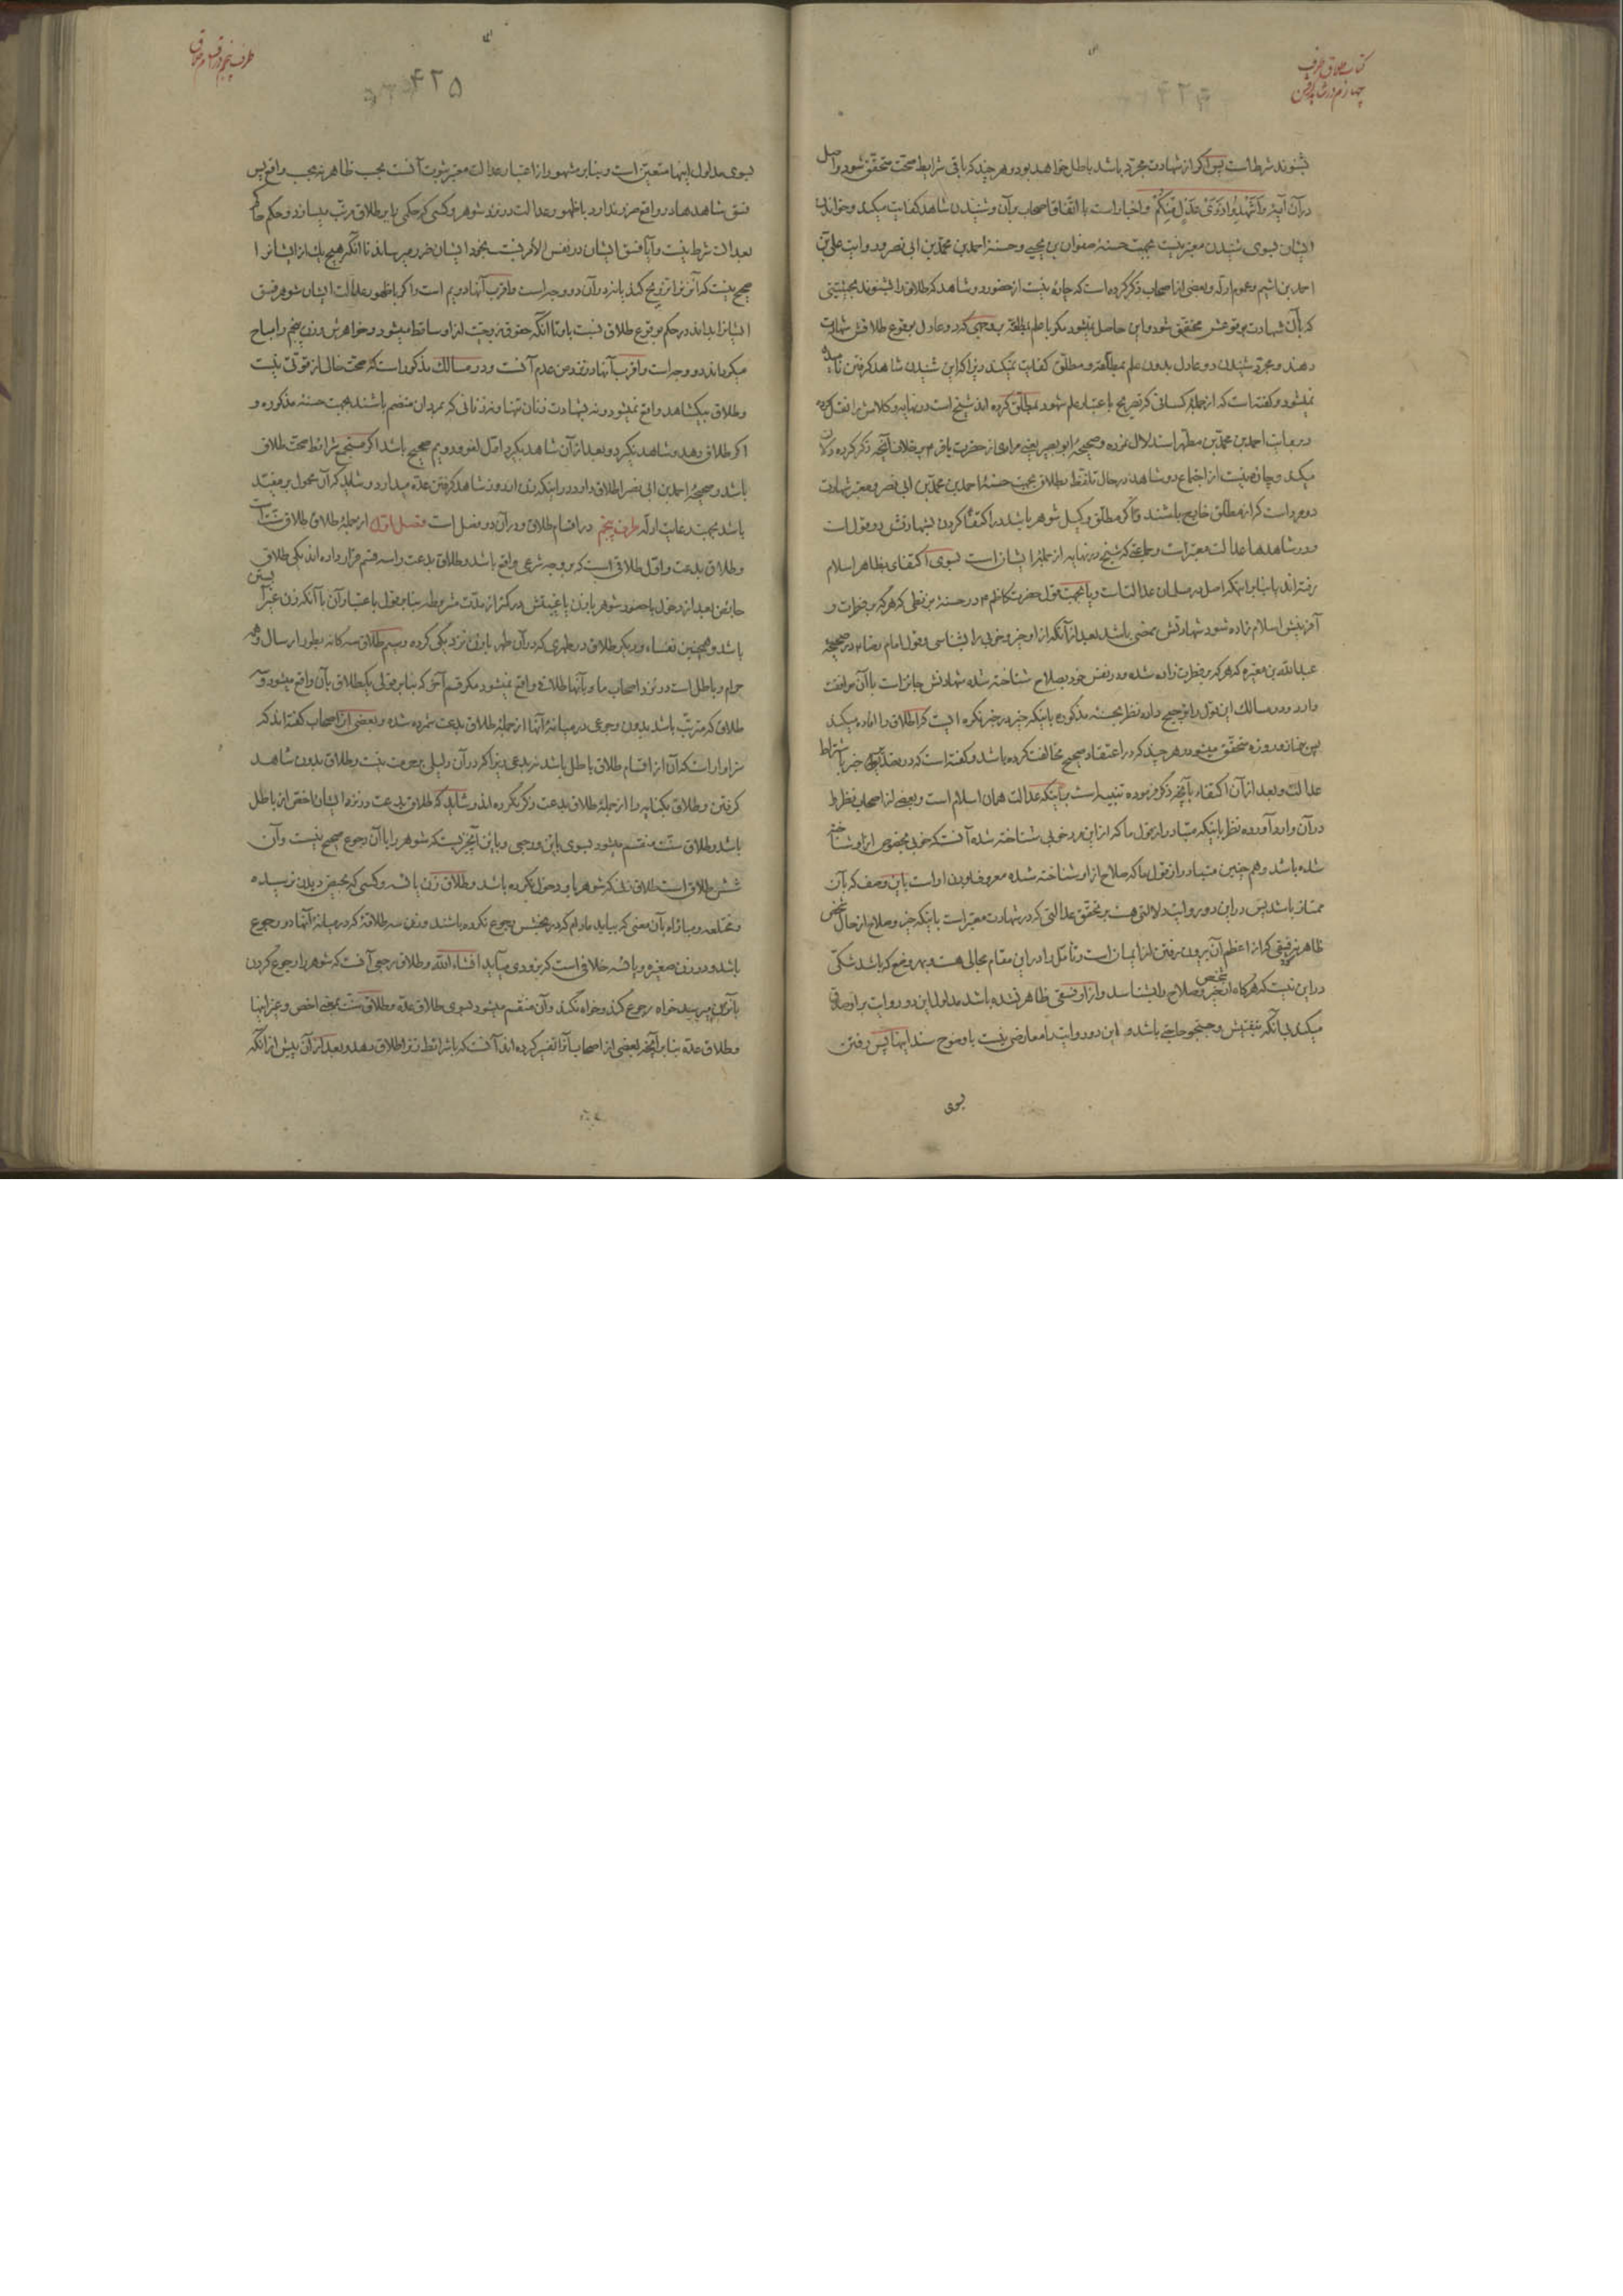 کتاب طلاق طرف
چهارم در شاهد گرفتن
۴۲۴
بشنوند شرط است پس اگر از شهادت مجرد باشد باطل خواهد بود و هر چند که باقی شرایط صحت متحقق شود و اصل
در آن آیهٔ وَأَشْهِدُوا ذَوَيْ عَدْلٍ مِنْكُمْ و اخبار است با اتفاق اصحاب و آن و شنیدن شاهد کفایت میکند و خواندن
ایشان بسوی شنیدن معتبر نیست بجهت حسنهٔ صفوان بن یحیی و حسنهٔ احمد بن محمد بن ابی نصر و روایت علی بن
احمد بن اشیم و عموم ادله و بعضی از اصحاب ذکر کرده است که چاره نیست از حضور دو شاهد که طلاق را بشنوند بحیثیتی
که بآن شهادت بوقوعش متحقق شود و این حاصل نمیشود مگر با علم بمطلقه دو عادل بوقوع طلاقش شهادت
دهند و مجرد شنیدن دو عادل بدون علم بمطلقه و مطلق کفایت نمیکند زیرا که این شنیدن شاهد گرفتن نامیده
نمیشود و گفته است که از جمله کسانی که تصریح باعتبار علم شهود بمطلق کرده اند شیخ است در نهایه و کلامش را نقل کرده
در روایت احمد بن محمد بن مطهر استدلال نموده و صحیحهٔ ابو بصیر یعنی مرادی از حضرت باقر ع بر خلاف آنچه ذکر کرده دلالت
میکند و چاره نیست از اجتماع دو شاهد در حال تلفظ بطلاق بجهت حسنهٔ احمد بن محمد بن ابی نصر و معتبر شهادت
دو مرد است که از مطلق خارج باشند و اگر مطلق وکیل شوهر باشد در اکتفا کردن بشهادتش دو قول است
و در شاهدها عدالت معتبر است و جماعتی که شیخ در نهایه از جملهٔ ایشان است بسوی اکتفای بظاهر اسلام
رفته اند یا بنا بر اینکه اصل در مسلمان عدالت است و یا بجهت قول حضرت کاظم ع در حسنهٔ بزنطی که هر که بر فطرت و
آفرینش اسلام زاده شود شهادتش ممضی باشد بعد از آنکه از او خیر و خوبی را بشناسی و قول امام رضا ع در صحیحهٔ
عبدالله بن مغیره که هر که بر فطرت زاده شده و در نفس خود بصلاح شناخته شده شهادتش جایز است با آن موافقت
دارد و در مسالک این قول را ترجیح داده نظر بحسنهٔ مذکوره باینکه خیر در خبر نکره ایست که اطلاق را افاده میکند
پس بنماز و روزه متحقق میشود و هر چند که در اعتقاد صحیح مخالفت کرده باشد و گفته است که در تصدیر خبر باشتراط
عدالت و بعد از آن اکتفاء بآنچه ذکر فرموده تنبیه است باینکه عدالت همان اسلام است و بعضی از اصحاب نظر را
در آن وارد آورده نظر باینکه متبادر از قول ما که از این مرد خوبی شناخته شده آنست که خوبی مخصوص از او شناخته
شده باشد و هم چنین متبادر از قول ما که صلاح از او شناخته شده معروف بودن او است باین وصف که بآن
ممتاز باشد پس در این دو روایت دلالتی هست بر تحقق عدالتی که در شهادت معتبر است باینکه خیر و صلاح از حال شخص
ظاهر فسقی که از اعظم آن بیرون رفتن از ایمان است و تأمل را در این مقام مجالی هست و بهر وضع که باشد شکی
در این نیست که هر گاه از شخص خیر و صلاح را بشناسد و از او فسقی ظاهر نشده باشد مدلول این دو روایت بر او صادق
میکند بی آنکه بتفتیش و جستجو حاجتی باشد و این دو روایت را معارضی نیست با وضوح سند اینها پس رفتن
بسوی
طرف پنجم در اقسام طلاق
۴۲۵
بسوی مدلول اینها متعین است و بنا بر مشهور از اعتبار عدالت معتبر ثبوت آنست بحسب ظاهر نه بحسب واقع پس
فسق شاهدها در واقع ضرر ندارد با ظهور عدالت در نزد شوهر و کسی که حکمی را بر طلاق مرتب میسازد و حکم حاکم
بعدالت شرط نیست و آیا فسق ایشان در نفس الامر نسبت بخود ایشان ضرر میرساند تا آنکه هیچ یک از ایشانرا
صحیح نیست که آن زنرا تزویج کند یا نه در آن دو وجه است و اقرب آنها دویم است و اگر با ظهور عدالت ایشان شوهر فسق
ایشانرا بداند در حکم بوقوع طلاق نسبت باو تا آنکه حقوق زوجیت از او ساقط میشود و خواهرش و زن پنجم را مباح
میگرداند دو وجه است و اقرب آنها در نزد من عدم آنست و در مسالک مذکور است که صحت خالی از قوتی نیست
و طلاق بیکشاهد واقع نمیشود و نه بشهادت زنان تنها و نه زنانی که بمردان منضم باشند بجهت حسنهٔ مذکوره و
اگر طلاق دهد و شاهد نگیرد و بعد از آن شاهد بگیرد اول لغو و دویم صحیح باشد اگر مستجمع شرائط صحت طلاق
باشد و صحیحهٔ احمد بن ابی نصر اطلاق دارد در اینکه زن از روز شاهد گرفتن عده میدارد و شاید که آن محمول بر مقید
باشد بجهت رعایت ادله طرف پنجم در اقسام طلاق و در آن دو فصل است فصل اول از جملهٔ طلاق طلاق سنت است
و طلاق بدعت و اول طلاقی است که بر وجه شرعی واقع باشد و طلاق بدعت را سه قسم قرار داده اند یکی طلاق
حایض بعد از دخول با حضور شوهر یا زن یا غیبتش در کمتر از مدت مشروطه بنا بر قول باعتبار آن با آنکه زن غیر آبستن
باشد و همچنین نفساء و دیگر طلاق در طهری که در آن طهر با زن نزدیکی کرده و سیم طلاق سه گانه بطور ارسال و همه
حرام و باطل است در نزد اصحاب ما و بآنها طلاق واقع نمیشود مگر قسم آخر که بنا بر قولی یک طلاق بآن واقع میشود و سه
طلاق که مترتب باشد بدون رجوعی در میانهٔ آنها از جملهٔ طلاق بدعت شمرده شده و بعضی از اصحاب گفته اند که
سزاوار است که آن از اقسام طلاق باطل باشد نه بدعی زیرا که در آن دلیلی بر حرمت نیست و طلاق بدون شاهد
گرفتن و طلاق بکنایه را از جملهٔ طلاق بدعت ذکر نکرده اند و شاید که طلاق بدعت در نزد ایشان اخص از باطل
باشد و طلاق سنت منقسم میشود بسوی باین و رجعی و باین آنچیزیست که شوهر را با آن رجوع صحیح نیست و آن
شش طلاق است طلاق زنی که شوهر باو دخول نکرده باشد و طلاق زن یائسه و کسی که بحیض دیدن نرسیده
و مختلعه و مباراة بآن معنی که بیاید مادام که در بخشش رجوع نکرده باشند و زن سه طلاقه که در میانهٔ آنها دو رجوع
باشد و در زن صغیره و یائسه خلافی است که بزودی میآید انشاء الله و طلاق رجعی آنست که شوهر را رجوع کردن
بآن میرسد خواه رجوع کند و خواه نکند و آن منقسم میشود بسوی طلاق عده و طلاق سنت بمعنی اخص و غیر اینها
و طلاق عده بنا بر آنچه بعضی از اصحاب آنرا تفسیر کرده اند آنست که با شرائط زنرا طلاق دهد و بعد از آن پیش از آنکه